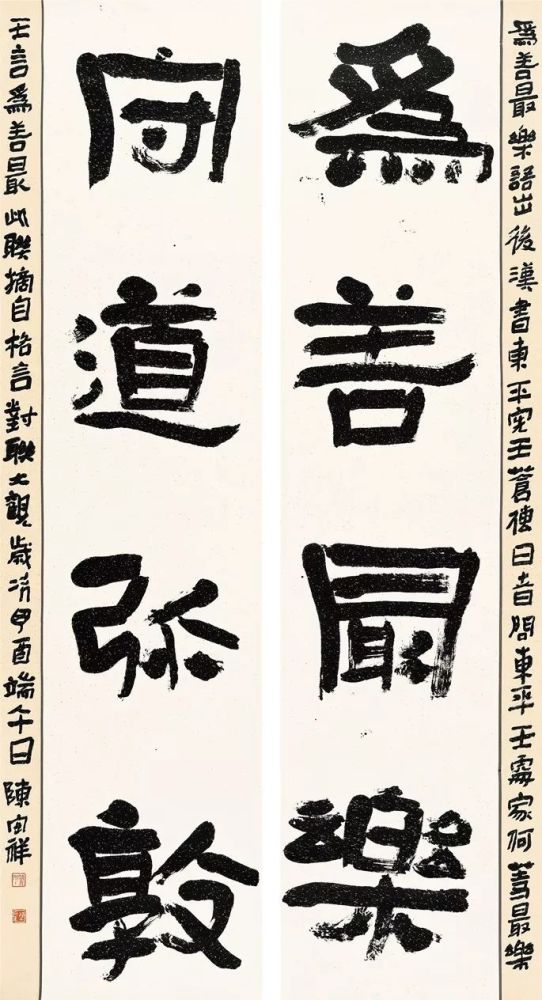 爲善最樂語出後漢書東平宪王蒼傳日者問東平王處家何等最樂
爲善最樂
守道弥敦
王言爲善最此聯摘自格言對聯大觀歲次甲酉端午日陳祥